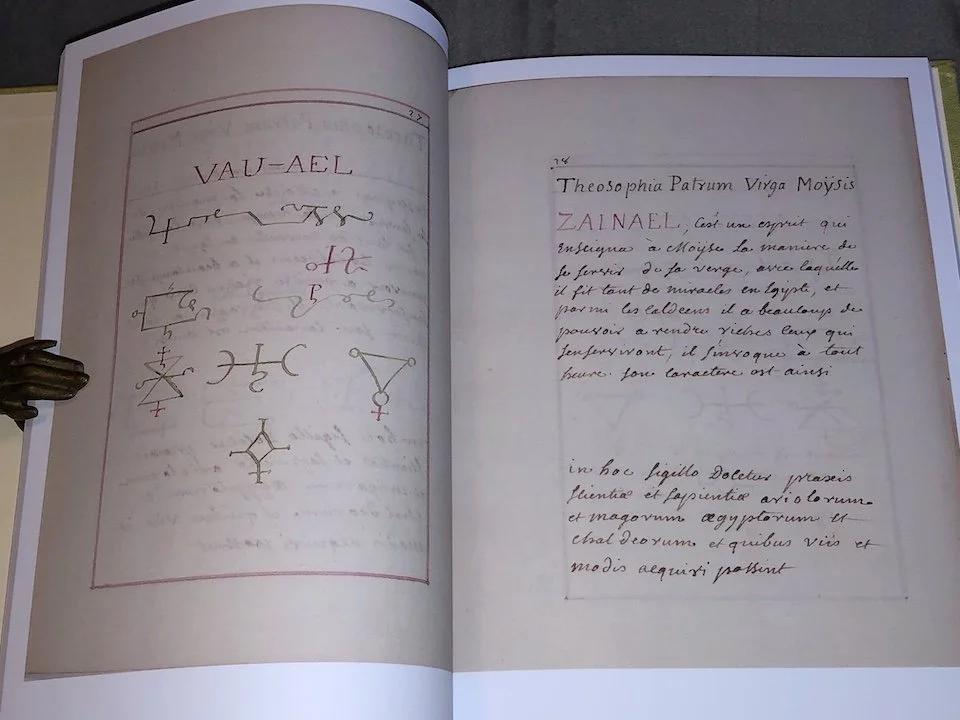 27
VAU-AEL
28
Theosophia Patrum Virga Moÿsis
ZAINAEL, C'ést un esprit qui
Enseigna à Moyse la maniere de
se servir de sa verge, avec laquélle
il fit tant de miracles en Egypte, et
parmi les Caldeens il a beaucoups de
pouvoir a rendre riches Ceux qui
s'enserviront, il s'invoque à tout
heure. son Caractere est ainsi
in hoc sigillo Docetur praxis
scientiæ et sapientiæ ariolorum
et magorum ægyptorum et
Chaldeorum et quibus viis et
modis acquiri possint